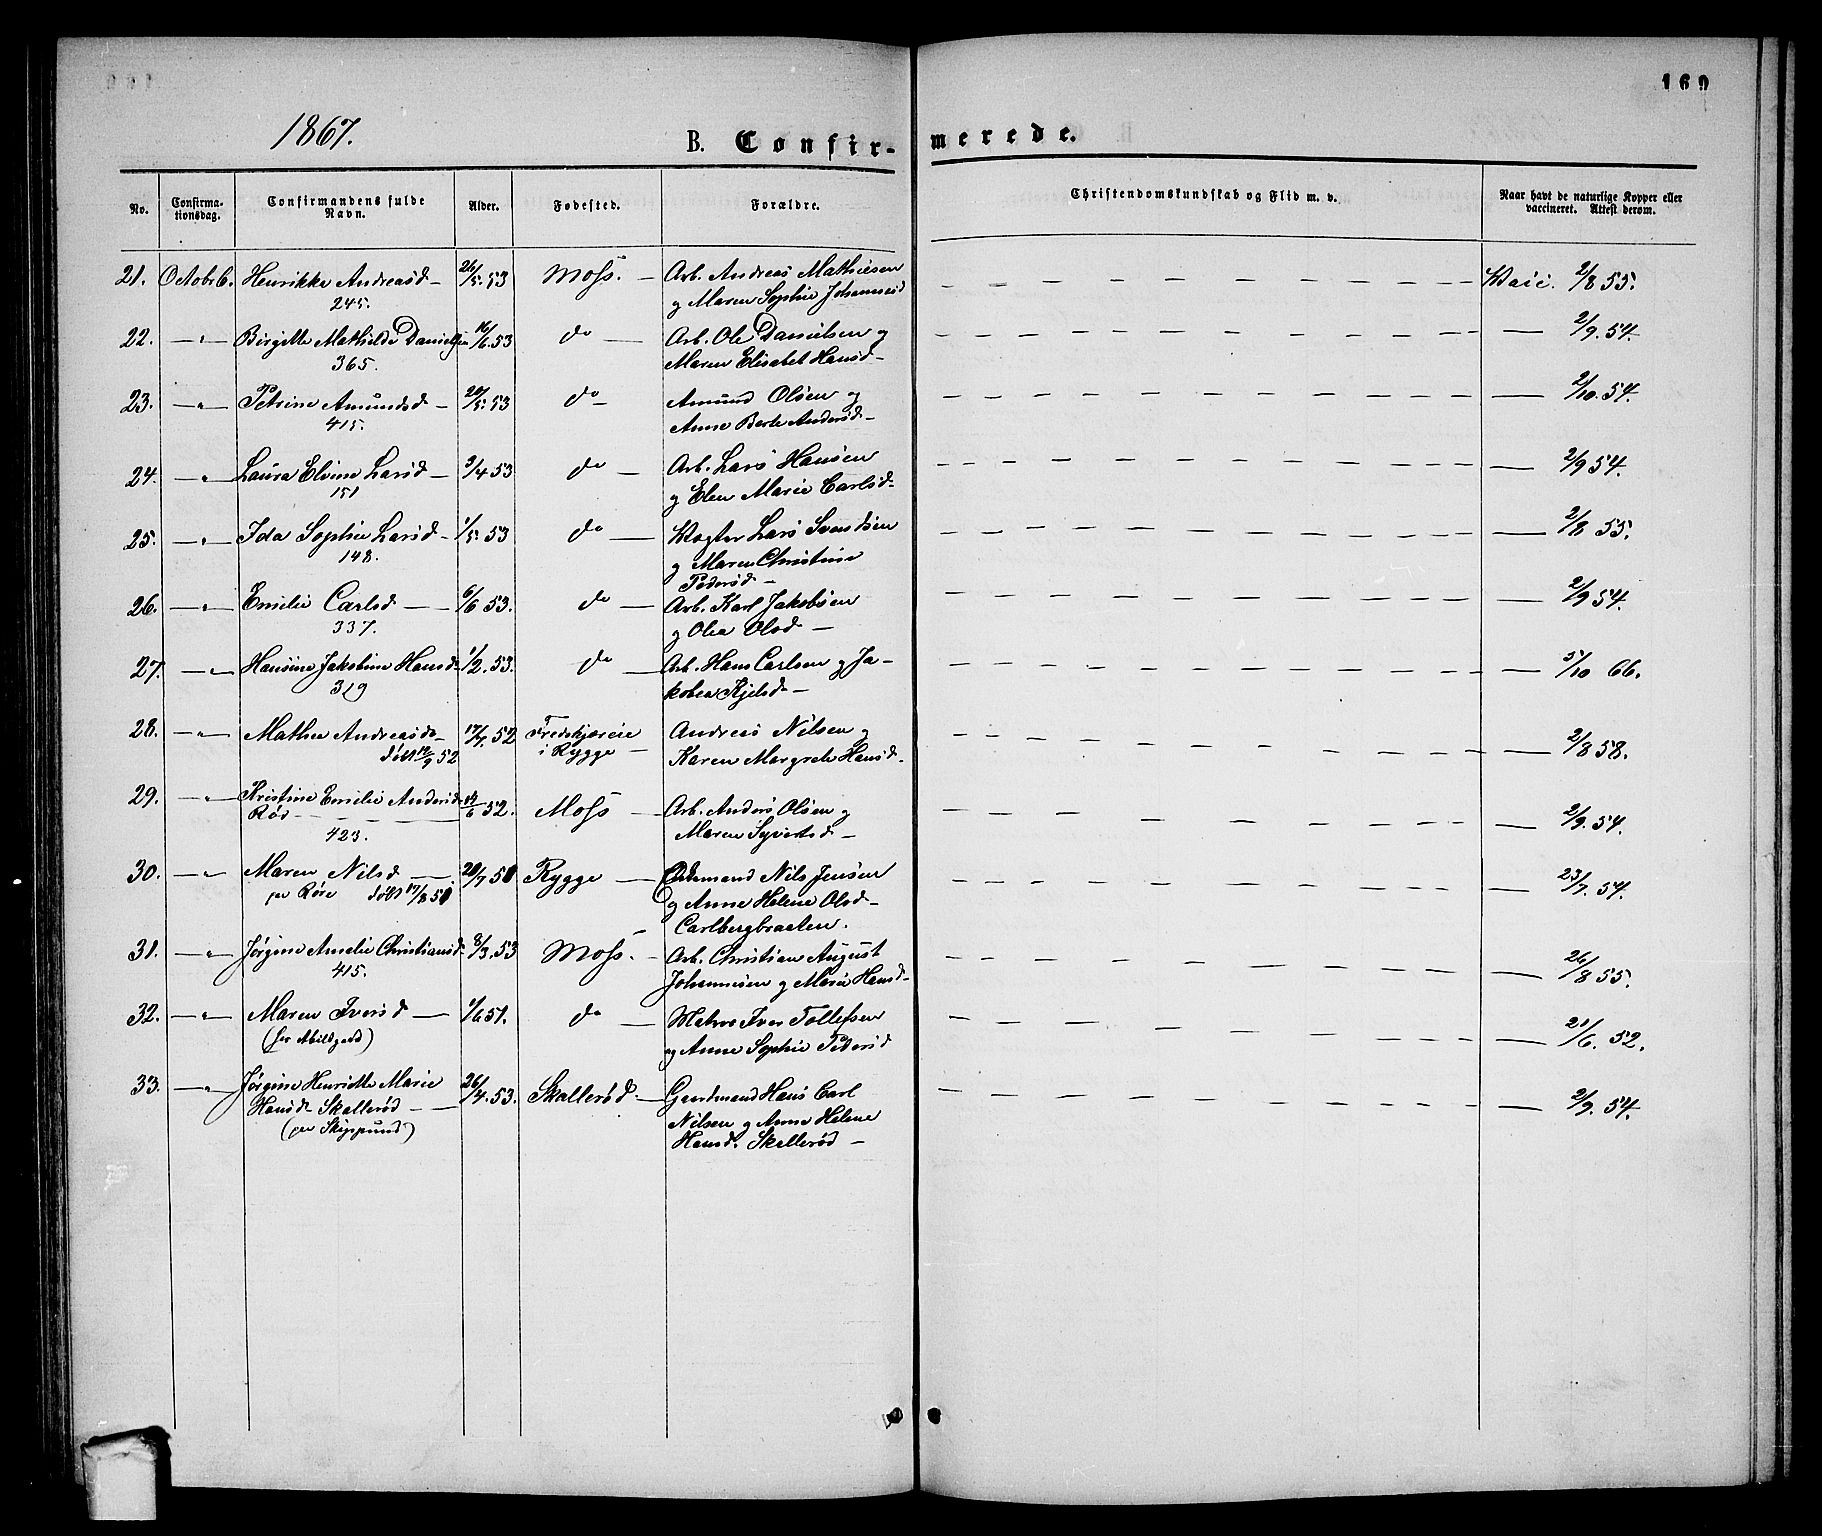 169
1867.
B. Confirmerede.
No. Confirmationsdag. Confirmandens fulde Navn. Alder. Fødested. Forældre. Christendomskundskab og Flid m. v. Naar havt de naturlige Kopper eller vaccineret. Attest derom.
21. Octobr 6. Henrikke Andreasd - 26/5. 53 Moss. - Arb. Andreas Mathiesen - - - Vacc. 2/8 55.
245. og Maren Sophie Johannesd
22. - " - Birgitte Mathilde Danielsen 16/6. 53 do - Arb. Ole Danielsen og - - - 2/9. 54.
365. Maren Elisabet Hansd -
23. - " - Petrine Amundsd - 20/5. 53 do - Amund Olsen og - - - 2/10. 54.
415. Anne Berte Andersd -
24. - " Laura Elvine Larsd - 3/4 53 do - Arb. Lars Hansen - - - 2/9 54.
151 og Elen Marie Carlsd -
25. - " - Ida Sophie Larsd - 1/5. 53 do - Vægter Lars Svendsen - - - 2/8 55.
148. og Maren Christine
Pedersd -
26. - " - Emilie Carlsd - 6/6 53. do - Arb. Karl Jakobsen - - - 2/9 54.
337. og Olea Olsd -
27. - " - Hansine Jakobine Hansd 1/2. 53. do Arb. Hans Carlsen og Ja- - - - 5/10 66.
319 kobea Kjelsd -
28. - " - Mathea Andreasd - 17/7. 52 i Rygge - Andreas Nilsen og - - - 2/8 58.
døbt 19/9 52 Karen Margrete Hansd -
29. - " Kristine Emilie Andersd 14/6 52. Moss Arb. Anders Olsen og - - - 2/9. 54.
Rød - 423. Maren Syvertsd -
30. - " - Maren Nilsd - 20/7 51 Rygge - Nils Jensen - - - 23/7. 54.
døbt 17/8 51 og Anne Helene Olsd -
Carlbergbraaten.
31. - " - Jørgine Amelie Christiansd 8/3. 53 Moss. - Arb. Christian August - - - 26/8 55.
415. Johannesen og Marie Hansd -
32. - " - Maren Iversd - 1/6 51. do - Matros Iver Tollefsen - - - 21/6. 52.
og Anne Sophie Pedersd
33. - " Jørgine Henriette Marie 26/4. 53. Skallerød - Gaardmand Hans Carl - - - 2/9. 54.
Hansd - Skallerød - Nilsen og Anne Helene
Hansd. Skallerød -